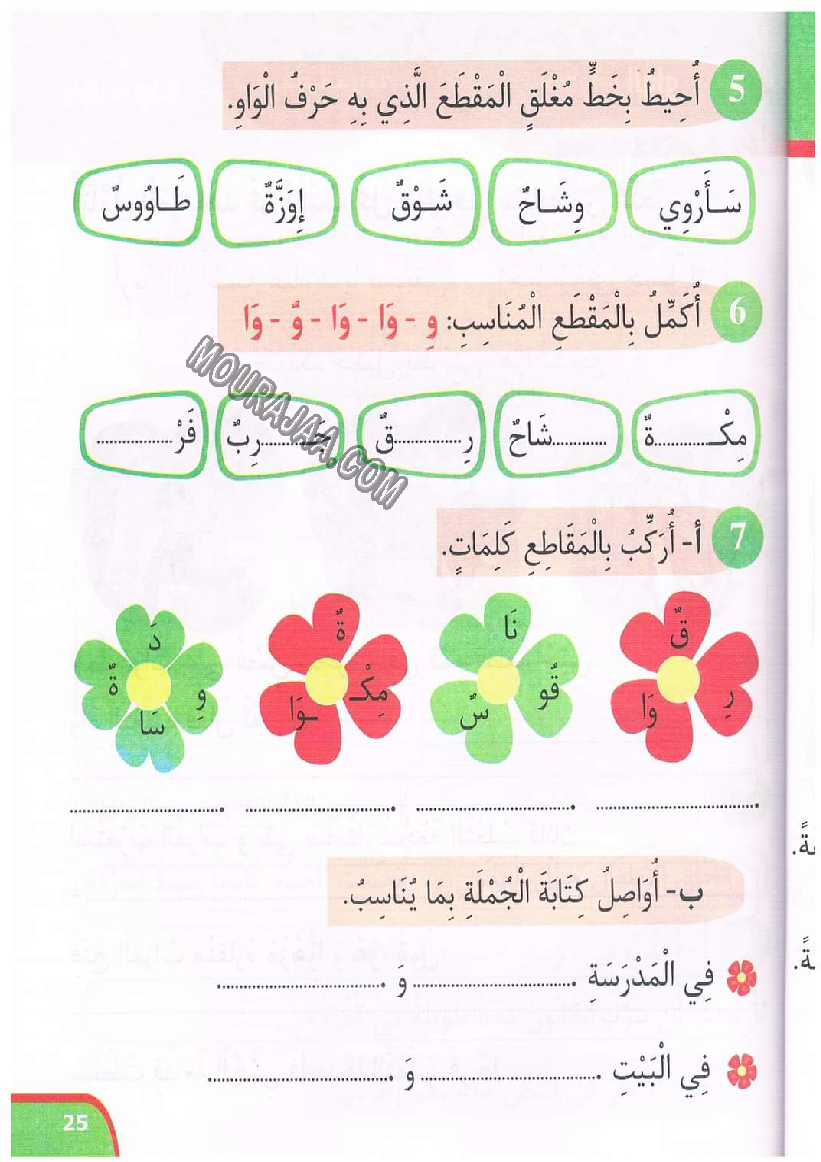 5 أُحِيطُ بِخَطٍّ مُغْلَقٍ الْمَقْطَعَ الَّذِي بِهِ حَرْفُ الْوَاوِ.
سَـأَرْوِي وِشَـاحٌ شَـوْقٌ إِوَزَّةٌ طَـاوُوسٌ
6 أُكَمِّلُ بِالْمَقْطَعِ الْمُنَاسِبِ: وِ - وَا - وَا - وٌ - وَا
مِكْـ............ةٌ ............شَاحٌ رِ................قٌ خَـ............رِبٌ فَرْ..................
MOURAJAA.COM
7 أ- أُرَكِّبُ بِالْمَقَاطِعِ كَلِمَاتٍ.
قٌ رِ وَا
نَا قُو سٌ
ةٌ مِكْـ ـوَا
دَ وِ سَا ةٌ
........................................ . ........................................ . ........................................ . ........................................ .
ب- أُوَاصِلُ كِتَابَةَ الْجُمْلَةِ بِمَا يُنَاسِبُ.
فِي الْمَدْرَسَةِ ........................................ وَ ........................................ .
فِي الْبَيْتِ ........................................ وَ ........................................ .
ةً.
ةً.
25